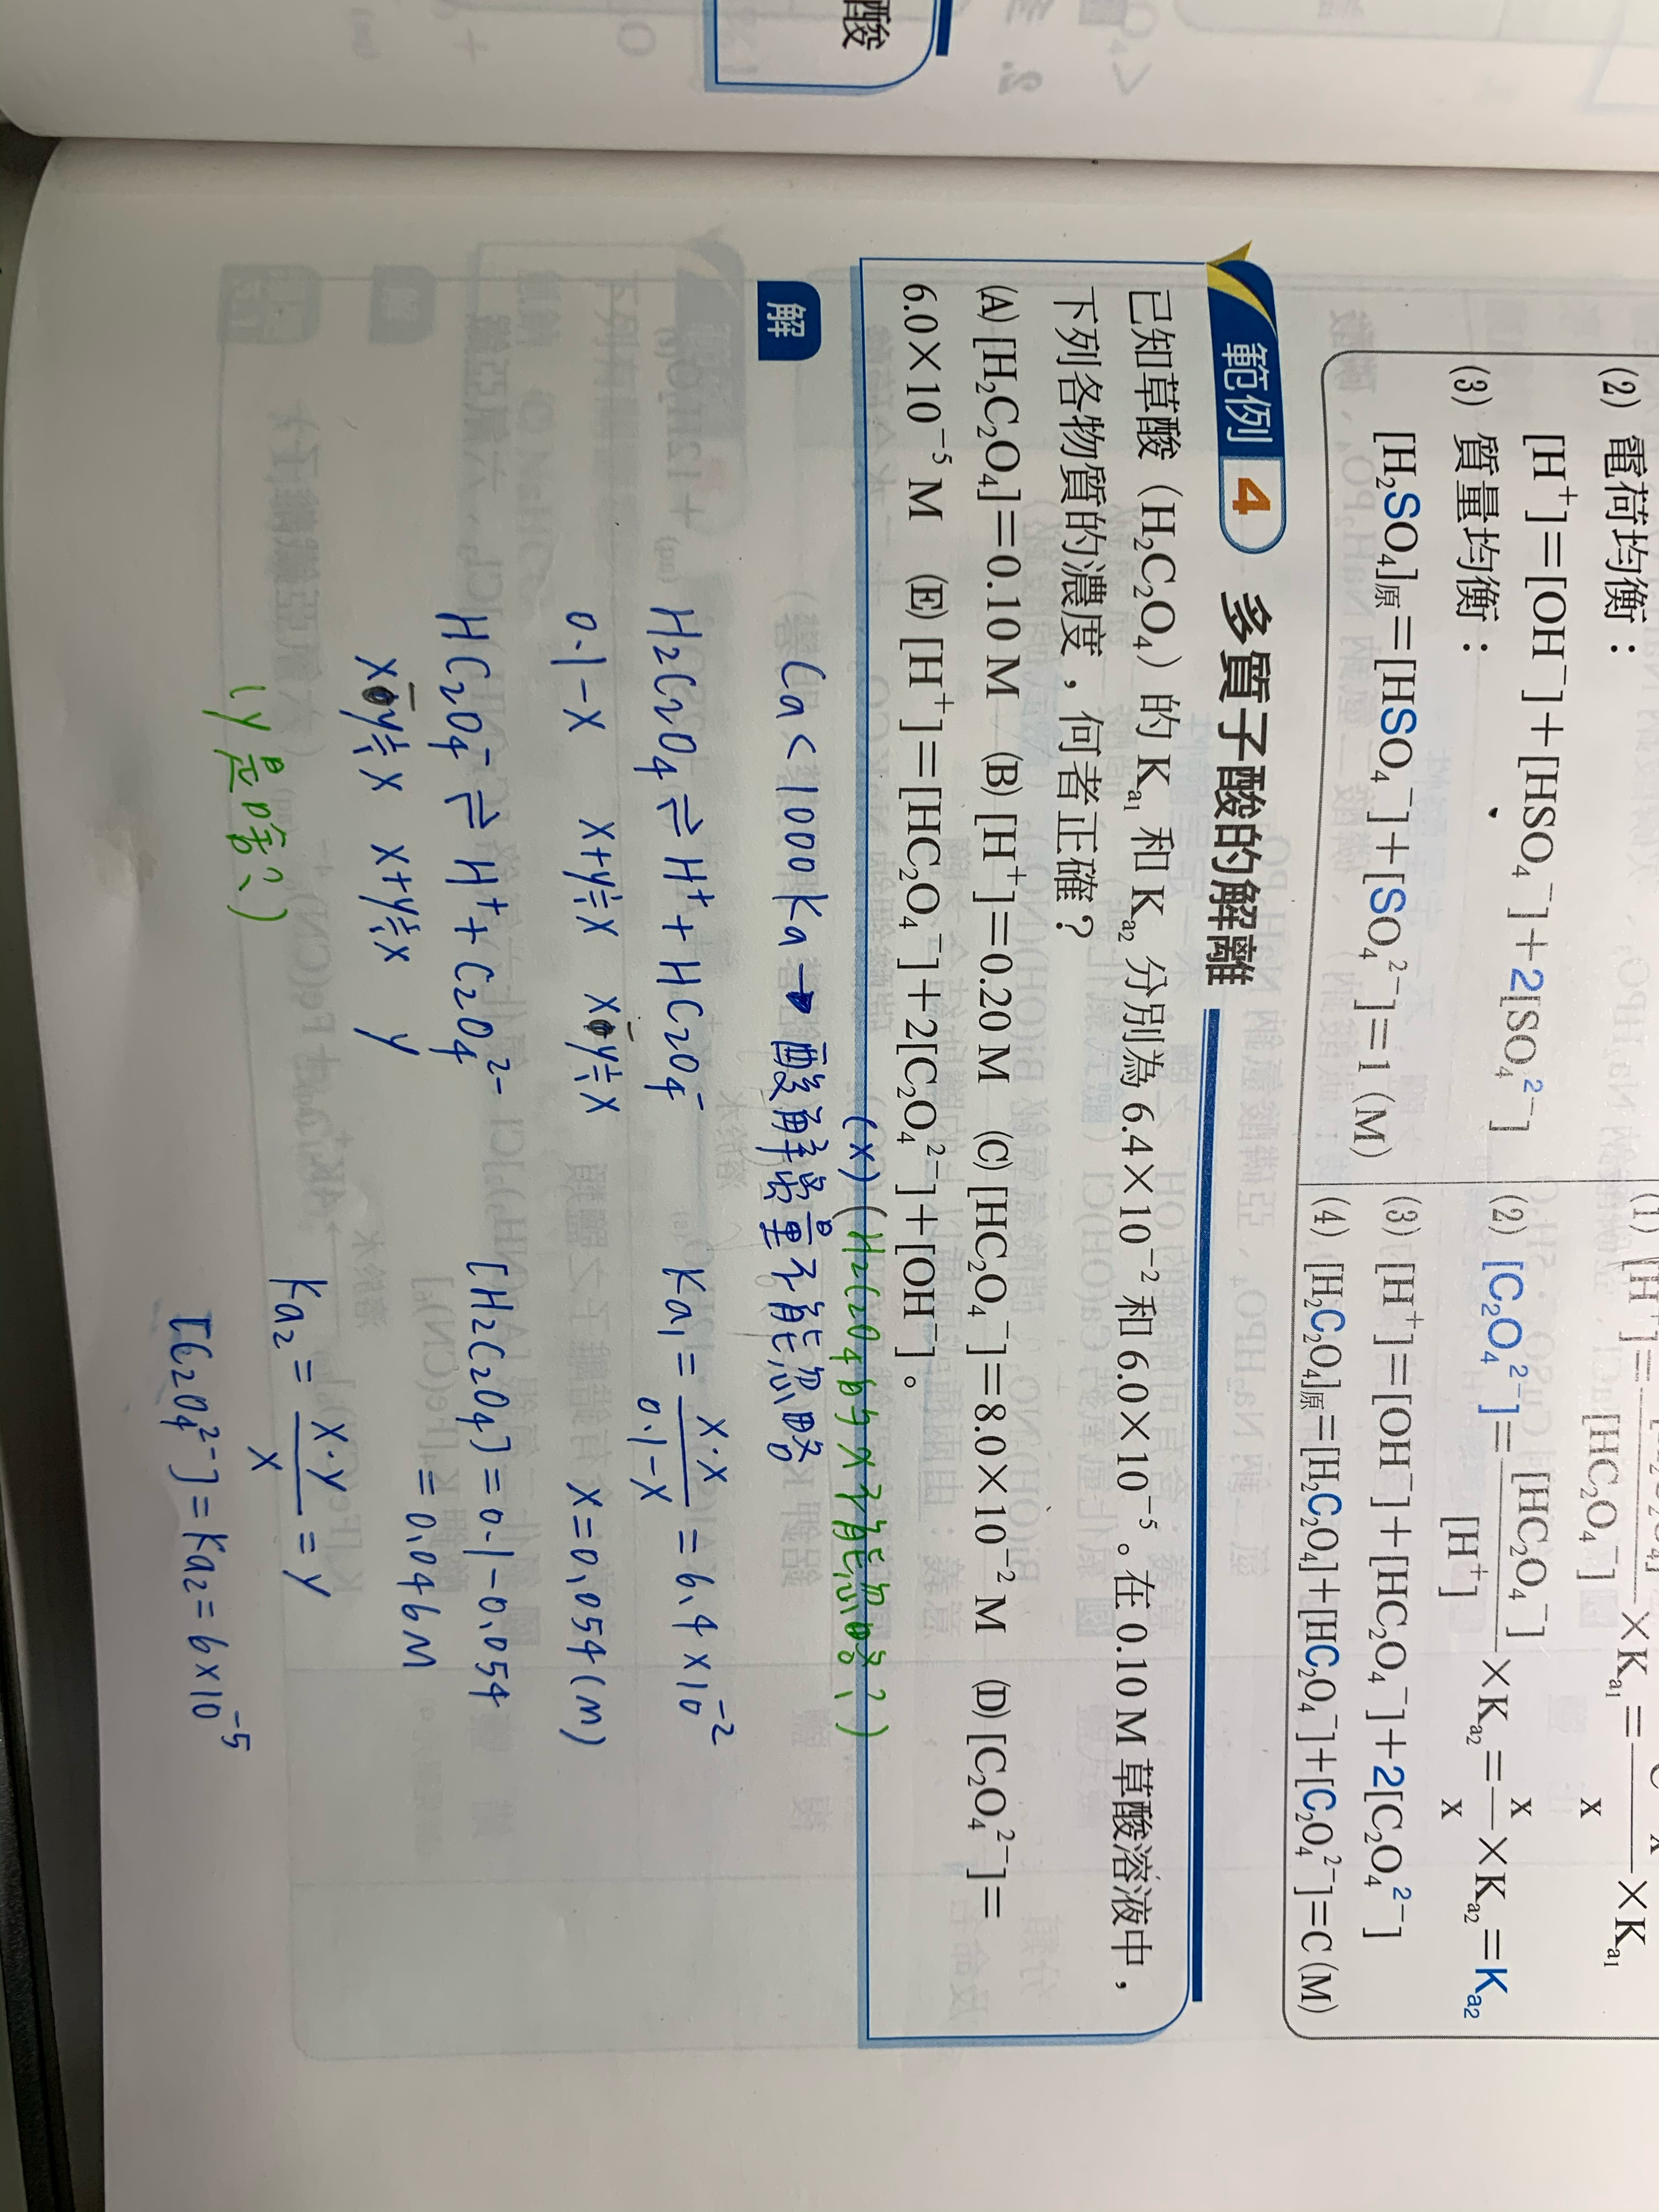 酸
(2) 電荷均衡：
[H⁺]=[OH⁻]+[HSO₄⁻]+2[SO₄²⁻]
(3) 質量均衡：
[H₂SO₄]原=[HSO₄⁻]+[SO₄²⁻]=1 (M)
(1) [H⁺]=
[HC₂O₄⁻] ×Kₐ₁= x ×Kₐ₁
(2) [C₂O₄²⁻]=[HC₂O₄⁻]/[H⁺]×Kₐ₂=x/x×Kₐ₂=Kₐ₂
(3) [H⁺]=[OH⁻]+[HC₂O₄⁻]+2[C₂O₄²⁻]
(4) [H₂C₂O₄]原=[H₂C₂O₄]+[HC₂O₄⁻]+[C₂O₄²⁻]=C (M)
範例 4 多質子酸的解離
已知草酸（H₂C₂O₄）的 Kₐ₁ 和 Kₐ₂ 分別為 6.4×10⁻² 和 6.0×10⁻⁵。在 0.10 M 草酸溶液中，
下列各物質的濃度，何者正確？
(A) [H₂C₂O₄]=0.10 M (B) [H⁺]=0.20 M (C) [HC₂O₄⁻]=8.0×10⁻² M (D) [C₂O₄²⁻]=
6.0×10⁻⁵ M (E) [H⁺]=[HC₂O₄⁻]+2[C₂O₄²⁻]+[OH⁻]。
(x) (H₂C₂O₄的x不能忽略?)
解
Ca<1000Ka→酸解出量不能忽略
H₂C₂O₄⇌H⁺+HC₂O₄⁻
0.1-x x+y≒x x-y≒x
HC₂O₄⁻⇌H⁺+C₂O₄²⁻
x-y≒x x+y≒x y
(y是啥?)
Ka₁=x·x/0.1-x=6.4×10⁻²
x=0.054(M)
[H₂C₂O₄]=0.1-0.054
=0.046M
Ka₂=x·y/x=y
[C₂O₄²⁻]=Ka₂=6×10⁻⁵